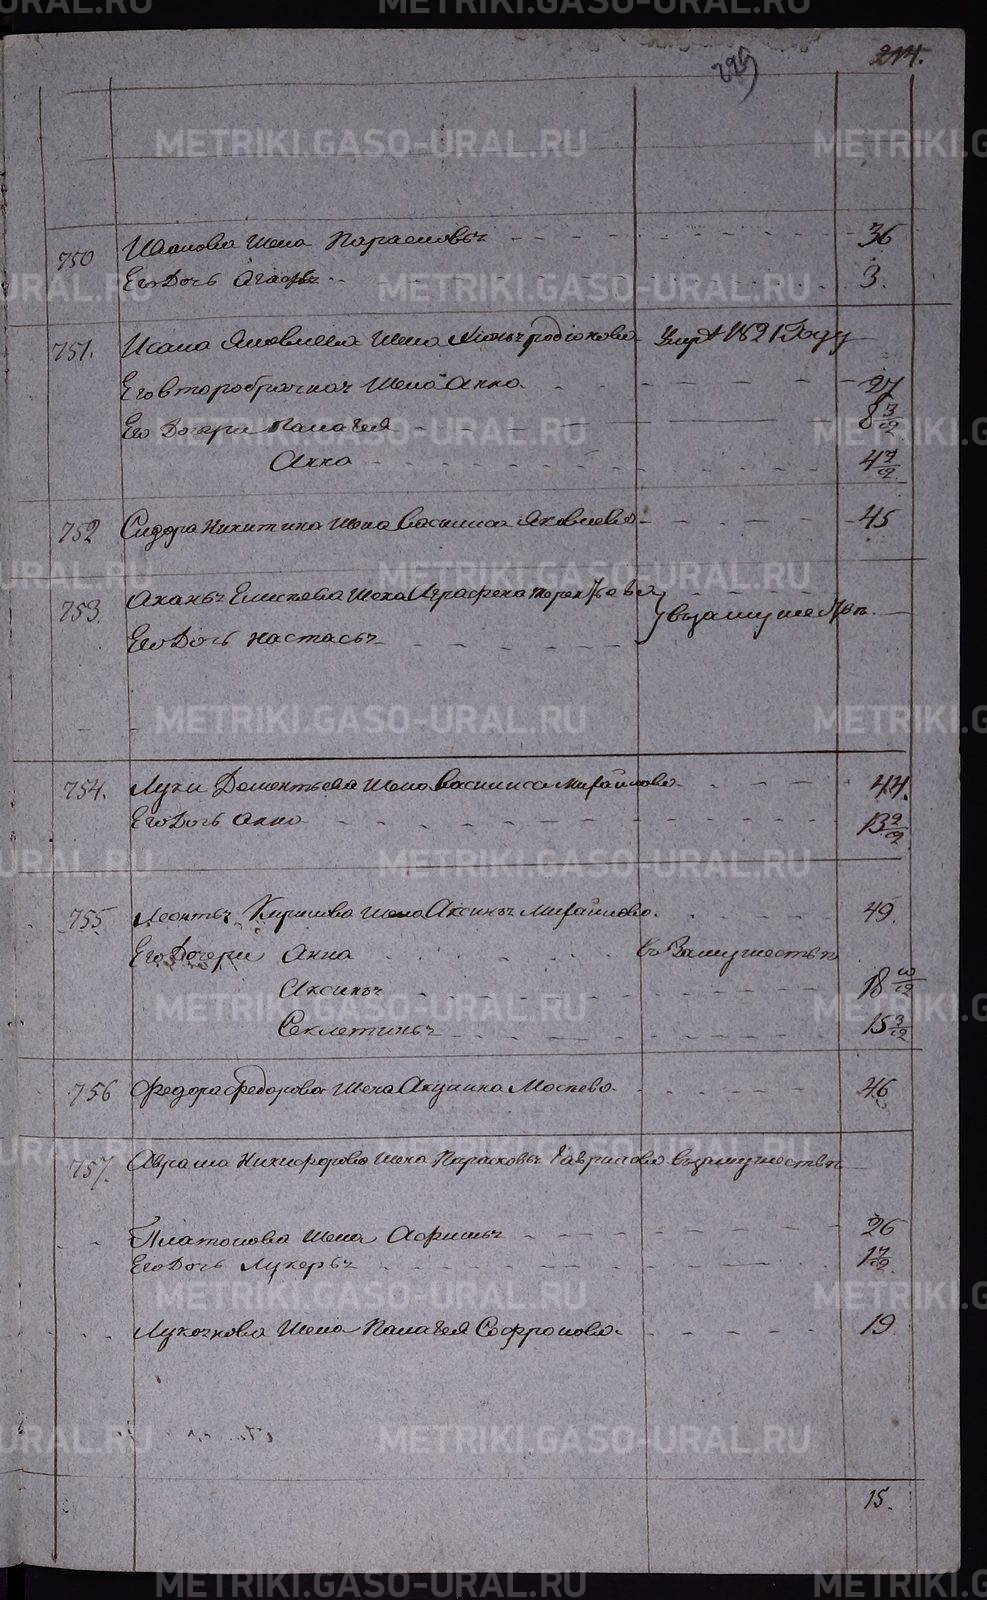 214.
229
750 Иванова жена Парасковья 36
Его дочь Агафья 3.
751. Исака Яковлева жена Родионова Умре 1821 Году
Его второбрачная жена Анна 27
Его дочери Палагея 8 3/12
Анна 4 7/12
752 Сидора Никитина жена Василиса Яковлева 45
753. Елисеева жена Аграфена
Его дочь Настасья
взамужестве.
754. Луки Дементьева жена Василиса Михайлова 44.
Его дочь Анна 13 9/12
755 Леонтья Кирилова жена Аксинья Михайлова 49.
Его дочери Анна в замужестве
Аксинья 18 10/12
Секлетинья 15 3/12
756 Федора Федорова жена Акулина Мосеева 46
757. Аврама Никифорова жена Парасковья Гаврилова взамужестве
Платонова жена Афимья 26
Его дочь Лукерья 1 7/12
жена Палагея Софронова 19
15.
METRIKI.GASO-URAL.RU